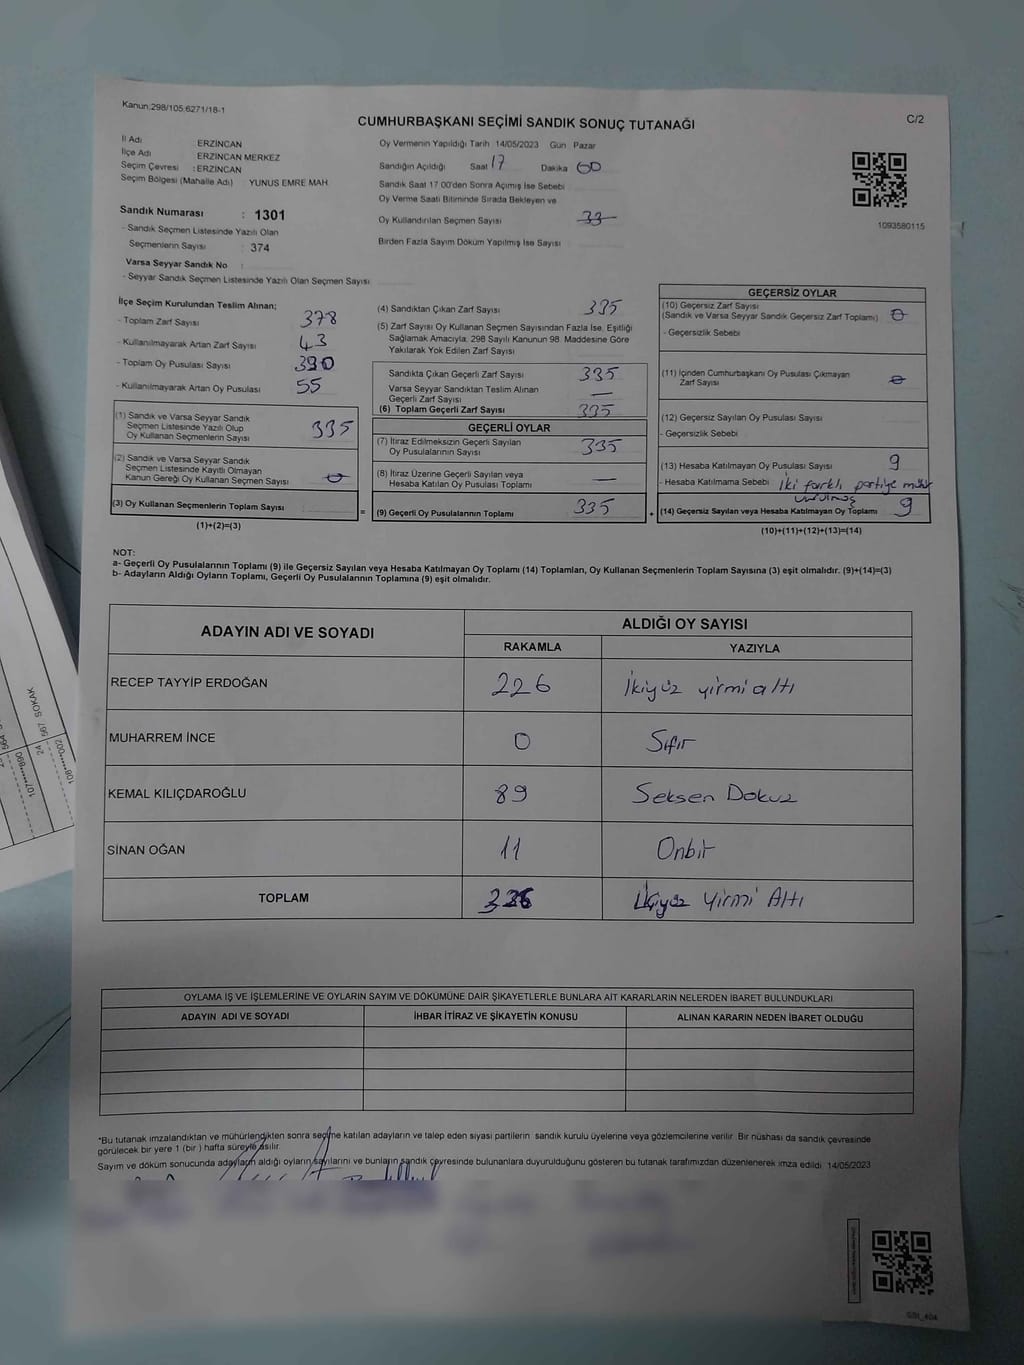 Kanun:298/105.6271/18-1
C/2
CUMHURBAŞKANI SEÇİMİ SANDIK SONUÇ TUTANAĞI
İl Adı ERZİNCAN
İlçe Adı ERZİNCAN MERKEZ
Seçim Çevresi : ERZİNCAN
Seçim Bölgesi (Mahalle Adı) YUNUS EMRE MAH.
Sandık Numarası : 1301
- Sandık Seçmen Listesinde Yazılı Olan
Seçmenlerin Sayısı : 374
Varsa Seyyar Sandık No :
- Seyyar Sandık Seçmen Listesinde Yazılı Olan Seçmen Sayısı
Oy Vermenin Yapıldığı Tarih 14/05/2023 Gün Pazar
Sandığın Açıldığı Saat 17 Dakika 00
Sandık Saat 17 00'den Sonra Açımış İse Sebebi
Oy Verme Saati Bitiminde Sırada Bekleyen ve
Oy Kullandırılan Seçmen Sayısı 33
Birden Fazla Sayım Döküm Yapılmış İse Sayısı
1093580115
İlçe Seçim Kurulundan Teslim Alınan;
- Toplam Zarf Sayısı 378
- Kullanılmayarak Artan Zarf Sayısı 43
- Toplam Oy Pusulası Sayısı 390
- Kullanılmayarak Artan Oy Pusulası 55
(1) Sandık ve Varsa Seyyar Sandık
Seçmen Listesinde Yazılı Olup
Oy Kullanan Seçmenlerin Sayısı 335
(2) Sandık ve Varsa Seyyar Sandık
Seçmen Listesinde Kayıtlı Olmayan
Kanun Gereği Oy Kullanan Seçmen Sayısı 0
(3) Oy Kullanan Seçmenlerin Toplam Sayısı =
(1)+(2)=(3)
(4) Sandıktan Çıkan Zarf Sayısı 335
(5) Zarf Sayısı Oy Kullanan Seçmen Sayısından Fazla İse, Eşitliği
Sağlamak Amacıyla, 298 Sayılı Kanunun 98. Maddesine Göre
Yakılarak Yok Edilen Zarf Sayısı
Sandıkta Çıkan Geçerli Zarf Sayısı 335
Varsa Seyyar Sandıktan Teslim Alınan
Geçerli Zarf Sayısı —
(6) Toplam Geçerli Zarf Sayısı 335
GEÇERLİ OYLAR
(7) İtiraz Edilmeksizin Geçerli Sayılan
Oy Pusulalarının Sayısı 335
(8) İtiraz Üzerine Geçerli Sayılan veya
Hesaba Katılan Oy Pusulası Toplamı —
(9) Geçerli Oy Pusulalarının Toplamı 335 +
GEÇERSİZ OYLAR
(10) Geçersiz Zarf Sayısı
(Sandık ve Varsa Seyyar Sandık Geçersiz Zarf Toplamı) 0
- Geçersizlik Sebebi
(11) İçinden Cumhurbaşkanı Oy Pusulası Çıkmayan
Zarf Sayısı 0
(12) Geçersiz Sayılan Oy Pusulası Sayısı
- Geçersizlik Sebebi
(13) Hesaba Katılmayan Oy Pusulası Sayısı 9
- Hesaba Katılmama Sebebi iki farklı partiye mühür
vurulmuş
(14) Geçersiz Sayılan veya Hesaba Katılmayan Oy Toplamı 9
(10)+(11)+(12)+(13)=(14)
NOT:
a- Geçerli Oy Pusulalarının Toplamı (9) ile Geçersiz Sayılan veya Hesaba Katılmayan Oy Toplamı (14) Toplamları, Oy Kullanan Seçmenlerin Toplam Sayısına (3) eşit olmalıdır. (9)+(14)=(3)
b- Adayların Aldığı Oyların Toplamı, Geçerli Oy Pusulalarının Toplamına (9) eşit olmalıdır.
ADAYIN ADI VE SOYADI
ALDIĞI OY SAYISI
RAKAMLA YAZIYLA
RECEP TAYYİP ERDOĞAN 226 İkiyüz yirmi altı
MUHARREM İNCE 0 Sıfır
KEMAL KILIÇDAROĞLU 89 Seksen Dokuz
SİNAN OĞAN 11 Onbir
TOPLAM 326 İkiyüz Yirmi Altı
OYLAMA İŞ VE İŞLEMLERİNE VE OYLARIN SAYIM VE DÖKÜMÜNE DAİR ŞİKAYETLERLE BUNLARA AİT KARARLARIN NELERDEN İBARET BULUNDUKLARI
ADAYIN ADI VE SOYADI İHBAR İTİRAZ VE ŞİKAYETİN KONUSU ALINAN KARARIN NEDEN İBARET OLDUĞU
*Bu tutanak imzalandıktan ve mühürlendikten sonra seçime katılan adayların ve talep eden siyasi partilerin sandık kurulu üyelerine veya gözlemcilerine verilir. Bir nüshası da sandık çevresinde
görülecek bir yere 1 (bir ) hafta süreyle asılır.
Sayım ve döküm sonucunda adayların aldığı oyların sayılarını ve bunların sandık çevresinde bulunanlara duyurulduğunu gösteren bu tutanak tarafımızdan düzenlenerek imza edildi. 14/05/2023
567 SOKAK
24
108****002
107****890
564